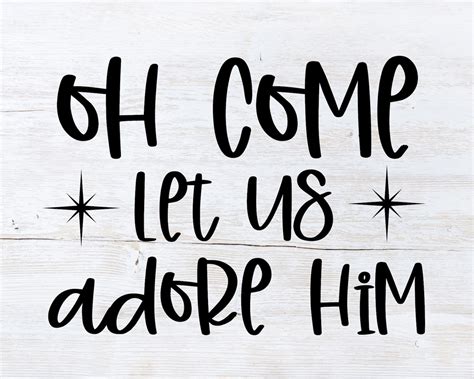 OH COME
let us
adore Him